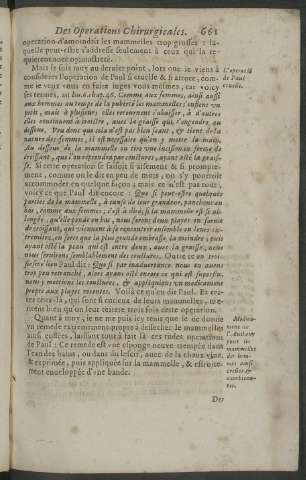 Des Operations Chirurgicales. 661
operation d'amoindrir les mammelles trop grosses : la-
quelle peut-estre s'addresse seulement à ceux qui la re-
quierent
Mais le suis au dernier point, lors que ie viens à
considerer l'operation de Paul si cruelle & si atroce, com-
me ie veux vous en faire iuges vous mesmes, car voicy
ses termes, au liu.6.chap.46. Comme aux femmes, ainsi aussi
aux hommes au temps de la puberté les mammelles s'enflent vn
peu, mais à plusieurs elles retournent s'abaisser, à d'autres
elles à nostre, auec la graisse qui s'engendre au
dessous. Veu donc que cela n'est pas bien seant, & tient de la
nature des femmes, il est necessaire d'y mettre la main.
Au dessous de la mammelle on fera vne incision en forme de
croissant, puis on ayant osté la grais-
se. Si cette operation se faisoit si aisement & si prompte-
ment, comme on le dit en peu de mots, on s'y pourroit
accommoder en quelque façon ; mais ce n'est pas tout,
voicy ce que Paul dit encore : Que si peut-estre quelques
parties de la mammelle, à cause de leur grandeur, panchent au
bas, comme aux femmes ; c'est à dire, si la mammelle est si al-
longée, qu'elle pende en bas, nous ferons deux playes en forme
de croissant, qui viennent à se rencontrer ensemble en leurs ex-
tremitez, en sorte que la plus grande embrasse la moindre, puis
ayant osté la peau qui est entre deux, auec la graisse, nous
nous seruirons semblablement des coustures. Outre ce en troi-
siesme lieu Paul dit : Que si par inaduertance nous en auons
trop peu retranché, alors ayans osté encore ce qui est superflu,
nous y mettrons les coustures, & appliquerons vn medicament
propre aux playes recentes. Voila ce qu'en dit Paul. Et cer-
tes ceux-là, qui sont si curieux de leurs mammelles, me-
ritent bien qu'on leur reitere trois fois cette operation.
Quant à moy, ie ne me puis icy tenir que ie ne donne
vn remede extremement propre à dessecher le mammelles
ainsi enflées, laissant tout à fait là ces rudes operations
de Paul : Ce remede est vne esponge neuue trempée dans
l'eau des bains, ou dans du lexif, auec de la chaux viue,
& exprimée, puis appliquée sur la mammelle, & estroite-
ment enueloppée d'vne bande.
Des
L'operatiō
de Paul
cruelle.
Medica-
ment de
l'Autheur
pour les
mammelles
des hom-
mes